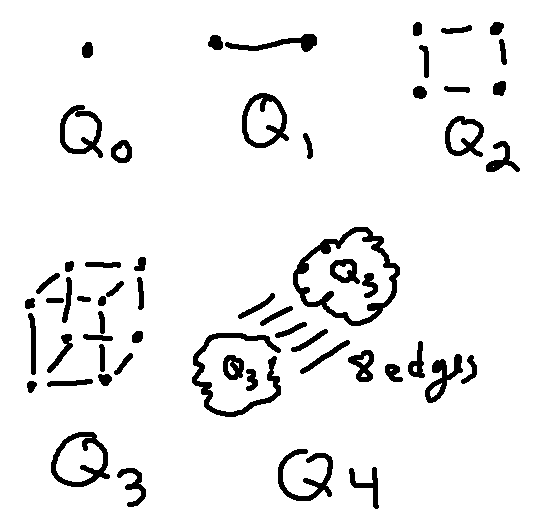 Q0
Q1
Q2
Q3
Q3
8 edges
Q3
Q4